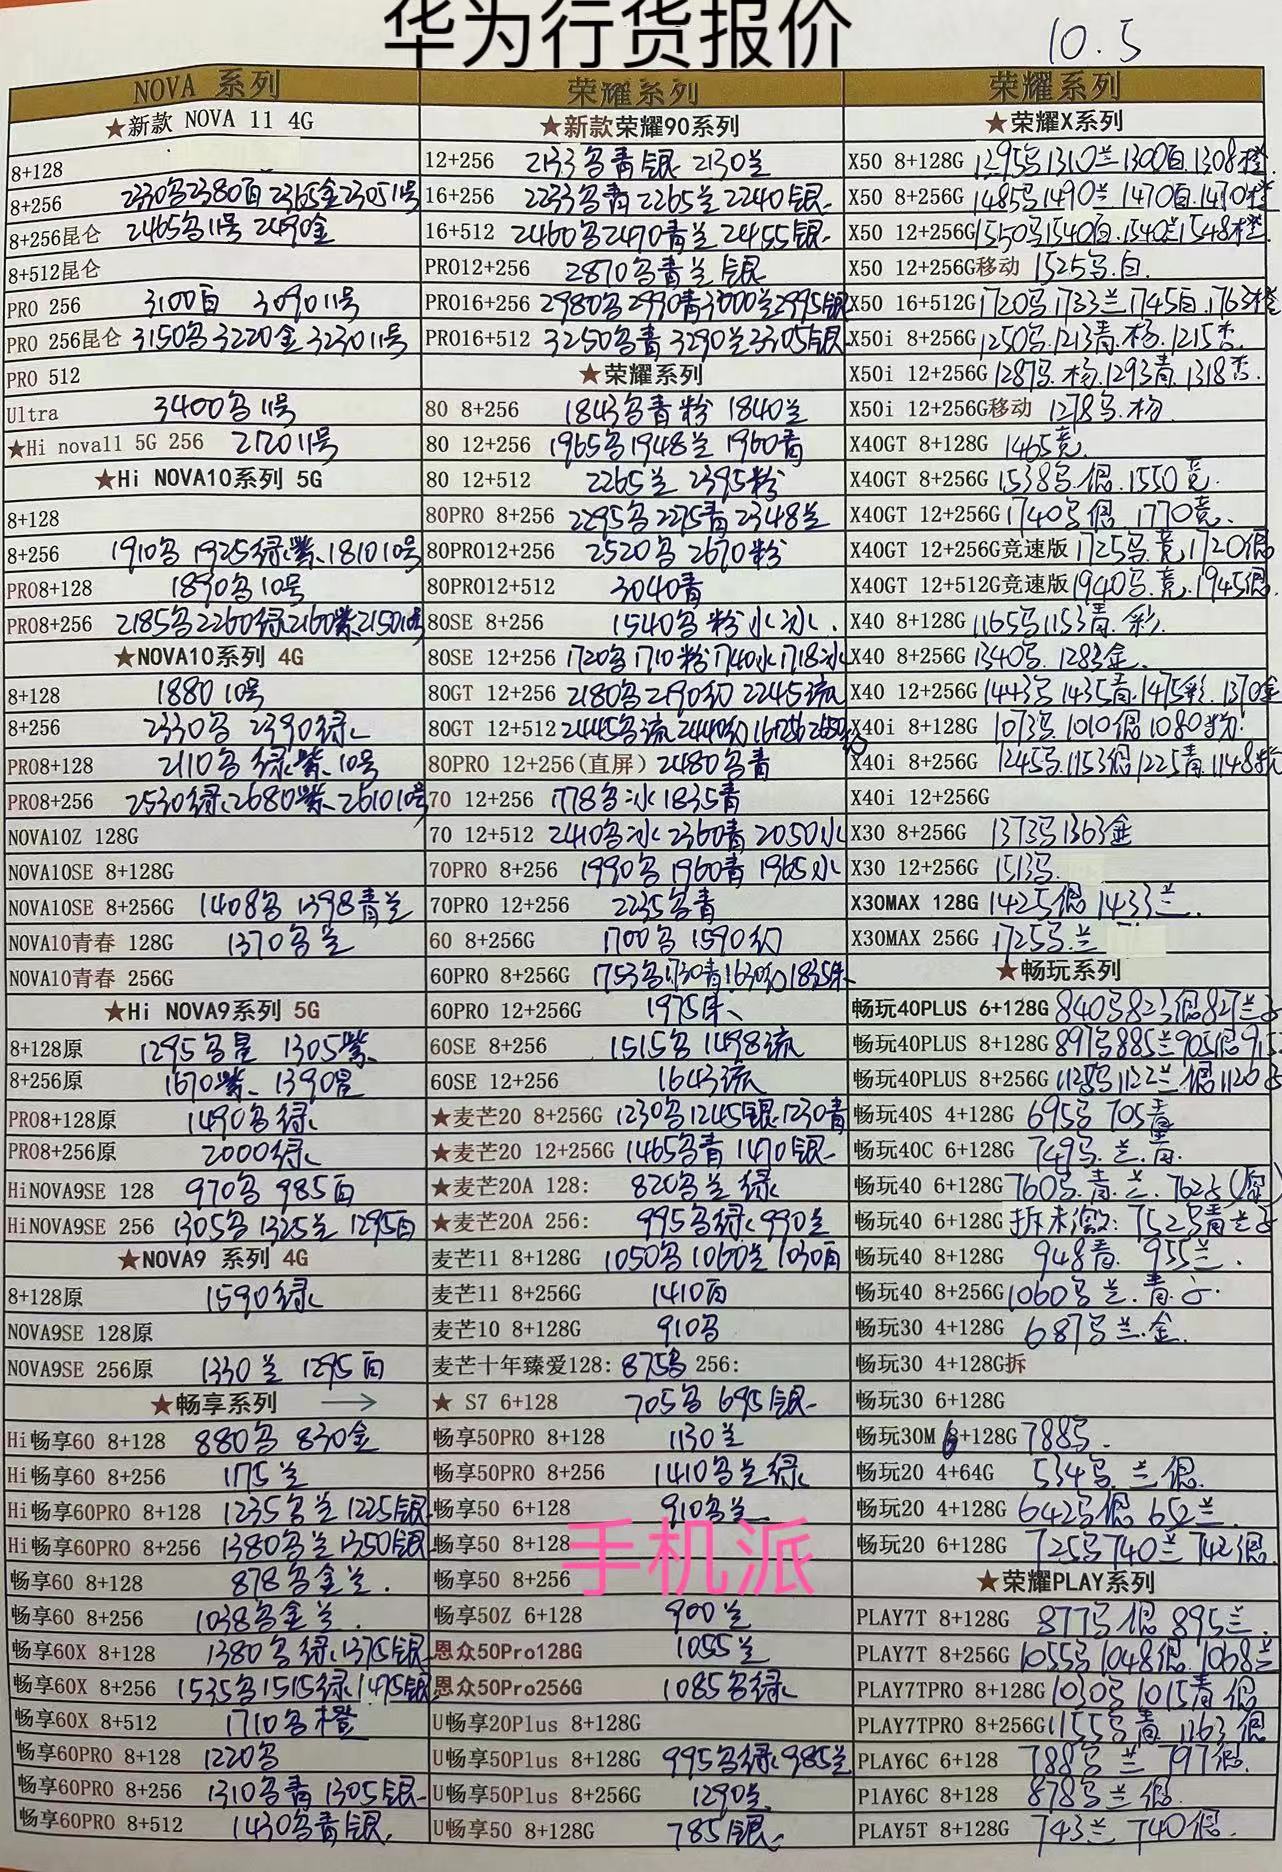 华为行货报价
10.5
NOVA 系列
★新款 NOVA 11 4G
8+128
8+256 2330 2380白 2365金 2305 11号
8+256昆仑 2465 11号 2490金
8+512昆仑
PRO 256 3100白 3090 11号
PRO 256昆仑 3150 3220金 3230 11号
PRO 512
Ultra 3400 11号
★Hi nova11 5G 256 2120 11号
★Hi NOVA10系列 5G
8+128
8+256 1910 1925绿紫 1810 10号
PRO8+128 1890 10号
PRO8+256 2185 2260绿 2160紫 2150 10号
★NOVA10系列 4G
8+128 1880 10号
8+256 2330 2390绿
PRO8+128 2110 绿紫 10号
PRO8+256 2530绿 2680紫 2610 10号
NOVA10Z 128G
NOVA10SE 8+128G
NOVA10SE 8+256G 1408 1398青兰
NOVA10青春 128G 1370 兰
NOVA10青春 256G
★Hi NOVA9系列 5G
8+128原 1295 星 1305紫
8+256原 1670紫 1390星
PRO8+128原 1490 绿
PRO8+256原 2000绿
HiNOVA9SE 128 970 985白
HiNOVA9SE 256 1305 1325兰 1295白
★NOVA9 系列 4G
8+128原 1590绿
NOVA9SE 128原
NOVA9SE 256原 1330兰 1295白
★畅享系列 →
Hi畅享60 8+128 880 830金
Hi畅享60 8+256 1175兰
Hi畅享60PRO 8+128 1235 兰 1225银
Hi畅享60PRO 8+256 1380 兰 1350银
畅享60 8+128 878 金兰
畅享60 8+256 1038 金兰
畅享60X 8+128 1380 绿 1375银
畅享60X 8+256 1535 1515绿 1495银
畅享60X 8+512 1710 橙
畅享60PRO 8+128 1220
畅享60PRO 8+256 1310 青 1305银
畅享60PRO 8+512 1430 青银
荣耀系列
★新款荣耀90系列
12+256 2133 青银 2130兰
16+256 2233 青 2265兰 2240银
16+512 2460 2470青兰 2455银
PRO12+256 2870 青兰银
PRO16+256 2980 2990青 3000兰 2995银
PRO16+512 3250 青 3290兰 3305银
★荣耀系列
80 8+256 1843 青粉 1840兰
80 12+256 1965 1948兰 1960青
80 12+512 2265兰 2395粉
80PRO 8+256 2295 2275青 2348兰
80PRO12+256 2520 2670粉
80PRO12+512 3040青
80SE 8+256 1540 粉水冰
80SE 12+256 1720 1710粉 1740水 1718冰
80GT 12+256 2180 2190幻 2245流
80GT 12+512 2445 流 2440幻
80PRO 12+256(直屏) 2480 青
70 12+256 1778 冰 1835青
70 12+512 2410 冰 2360青 2050水
70PRO 8+256 1990 1960青 1965水
70PRO 12+256 2235 青
60 8+256G 1700 1590幻
60PRO 8+256G 1753 1730青 1630幻 1835朱
60PRO 12+256G 1975朱
60SE 8+256 1515 1498流
60SE 12+256 1643流
★麦芒20 8+256G 1230 1245银 1230青
★麦芒20 12+256G 1465 青 1470银
★麦芒20A 128: 820 兰 绿
★麦芒20A 256: 995 绿 990兰
麦芒11 8+128G 1050 1060兰 1030白
麦芒11 8+256G 1410白
麦芒10 8+128G 910
麦芒十年臻爱128: 875 256:
★ S7 6+128 705 695银
畅享50PRO 8+128 1130兰
畅享50PRO 8+256 1410 兰绿
畅享50 6+128 910 兰
畅享50 8+128
手机派
畅享50 8+256
畅享50Z 6+128 900兰
恩众50Pro128G 1055兰
恩众50Pro256G 1085 绿
U畅享20Plus 8+128G
U畅享50Plus 8+128G 995 绿 985兰
U畅享50Plus 8+256G 1290兰
U畅享50 8+128G 785银
荣耀系列
★荣耀X系列
X50 8+128G 1295 1310兰 1300白 1308橙
X50 8+256G 1485 1490兰 1470白 1470橙
X50 12+256G 1550 1540白 1540兰 1548橙
X50 12+256G移动 1525 白
X50 16+512G 1720 1733兰 1745白 1763橙
X50i 8+256G 1250 1213青 杨 1215杏
X50i 12+256G 1287 杨 1293青 1318杏
X50i 12+256G移动 1278 杨
X40GT 8+128G 1465竞
X40GT 8+256G 1538 1550竞
X40GT 12+256G 1740 1770竞
X40GT 12+256G竞速版 1725 竞 1720
X40GT 12+512G竞速版 1940 竞 1945
X40 8+128G 1165 1153青 彩
X40 8+256G 1340 1283金
X40 12+256G 1443 1435青 1475彩 1370金
X40i 8+128G 1073 1010 1080粉
X40i 8+256G 1245 1153 1225青 1148粉
X40i 12+256G
X30 8+256G 1373 1363金
X30 12+256G 1513
X30MAX 128G 1425 1433兰
X30MAX 256G 1725 兰
★畅玩系列
畅玩40PLUS 6+128G 840 823 827兰
畅玩40PLUS 8+128G 897 885兰 905
畅玩40PLUS 8+256G 1128 1122兰 1120
畅玩40S 4+128G 695 705青
畅玩40C 6+128G 749 兰 青
畅玩40 6+128G 760 青 兰 762
畅玩40 6+128G 拆未激: 752 青兰
畅玩40 8+128G 948青 955兰
畅玩40 8+256G 1060 兰 青
畅玩30 4+128G 687 兰 金
畅玩30 4+128G拆
畅玩30 6+128G
畅玩30M 6+128G 788
畅玩20 4+64G 534 兰
畅玩20 4+128G 642 652兰
畅玩20 6+128G 725 740兰 742
★荣耀PLAY系列
PLAY7T 8+128G 877 895兰
PLAY7T 8+256G 1055 1048 1068兰
PLAY7TPRO 8+128G 1030 1015青
PLAY7TPRO 8+256G 1155 青 1163
PLAY6C 6+128 788 兰 797
PlAY6C 8+128 878 兰
PLAY5T 8+128G 743兰 740